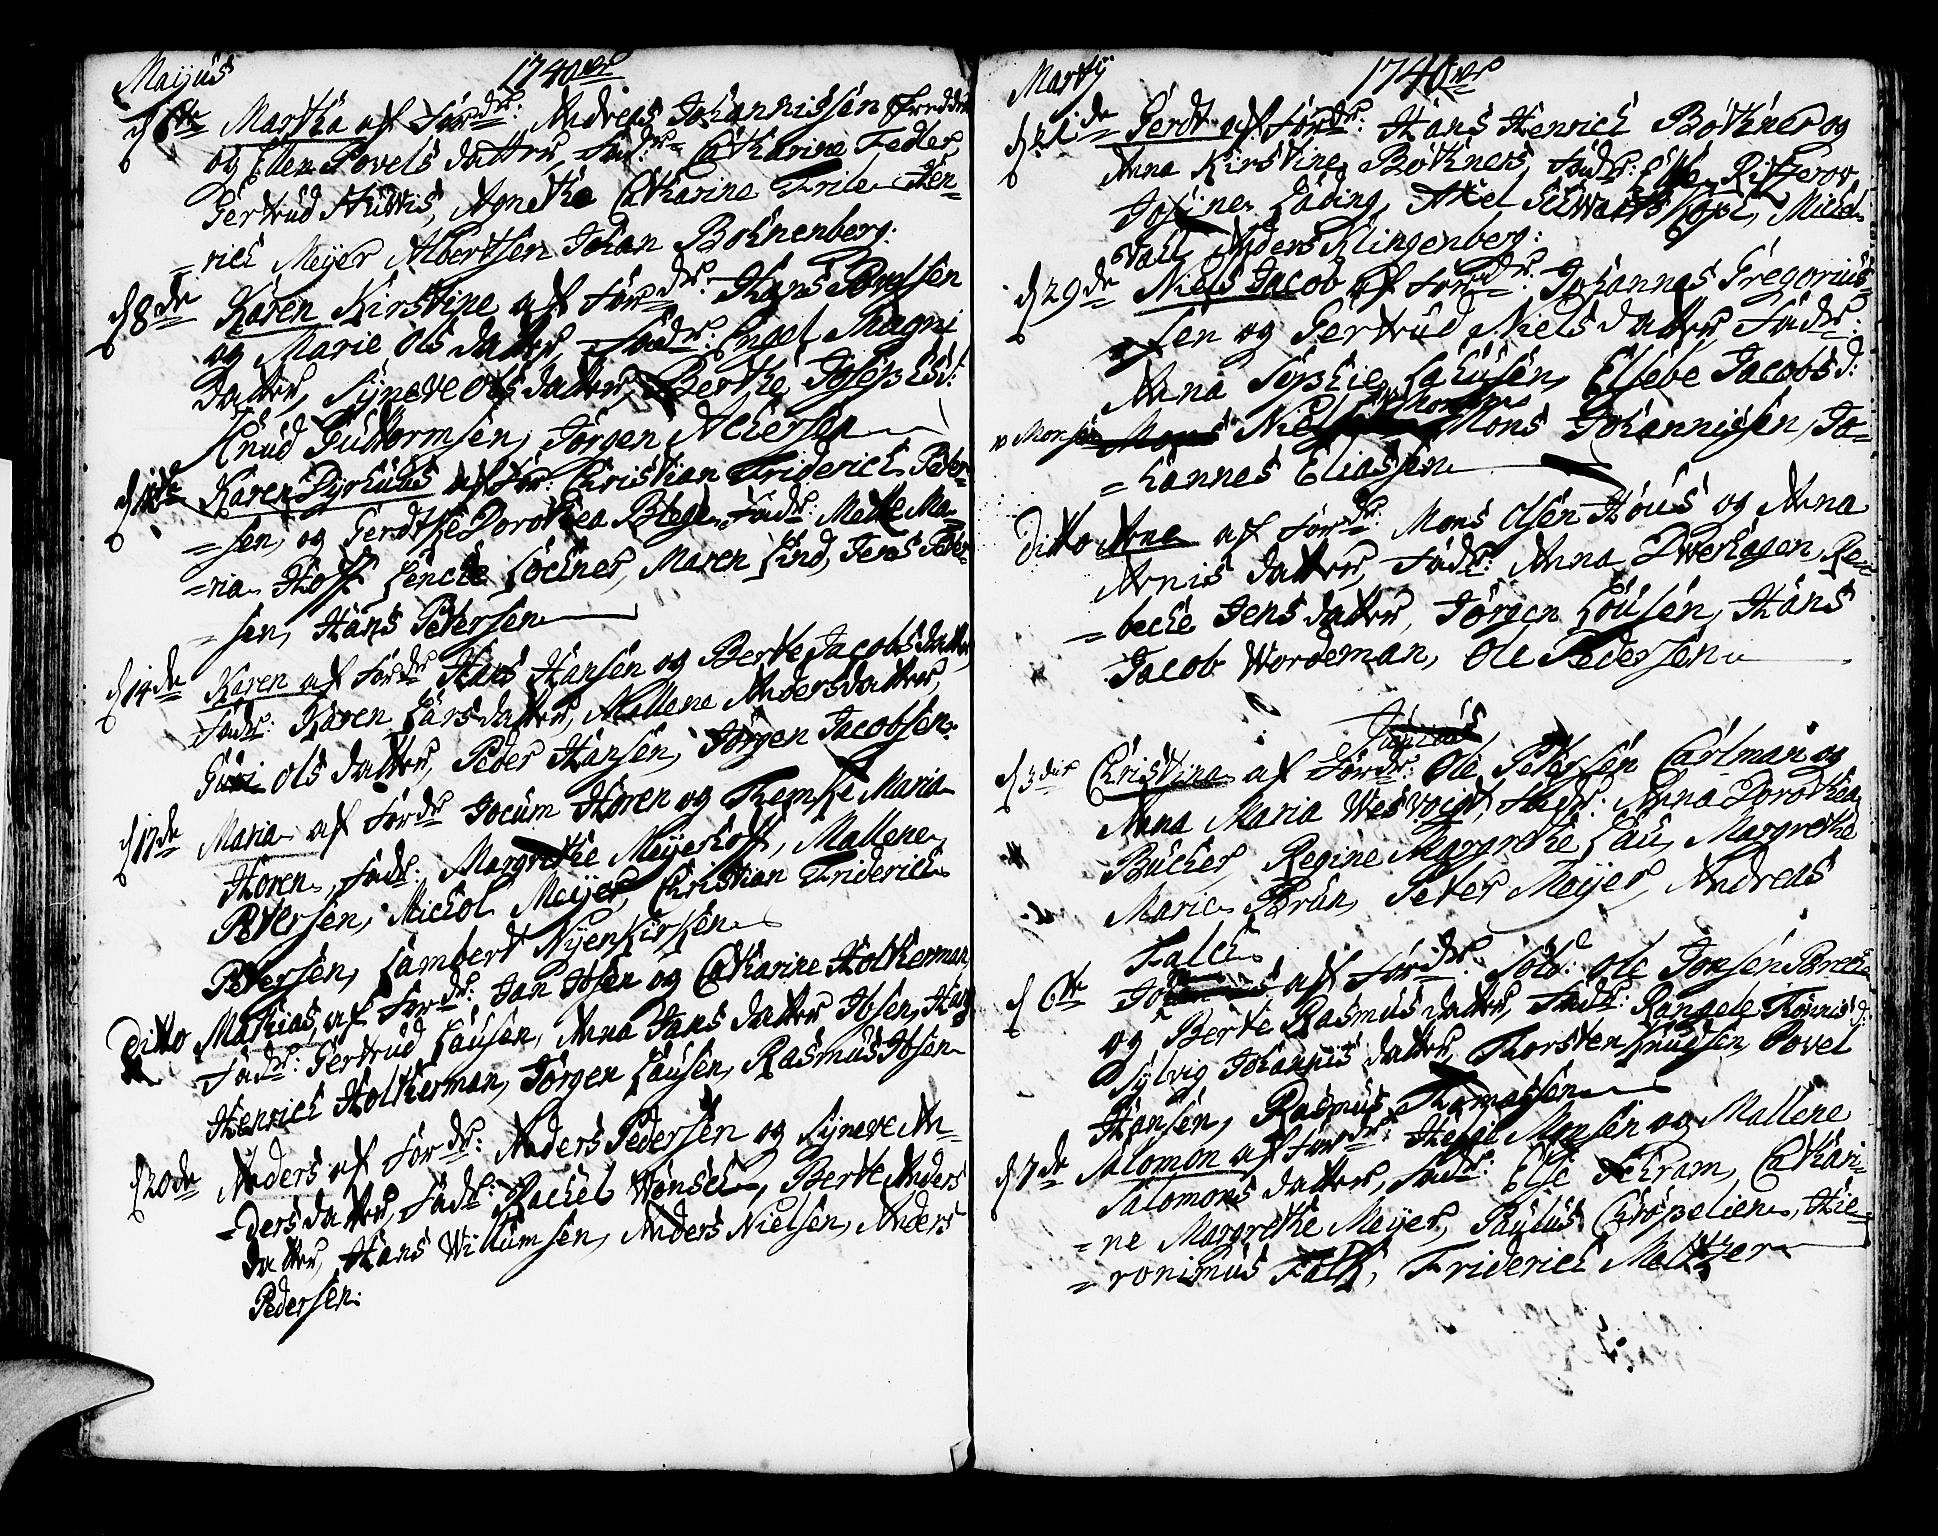 Maijus 1740
d 6te Martha af For dr: Andreas Johannissen
og Ellen Povels datter, fadr: Catharine Fedler,
Gertrud Hüttis, Agnethe Catharine Friile, Hen-
=rich Meyer Albertsen Johan Bohnenberg:
d 8de Karen Kirstine af For dr: Hans Povelsen
og Marie Ols datter, fadr: Engel Magni
datter, Synneve Ols datter, Berthe Josephsd:
Knud Guttormsen, Jørgen Aciersen
Karen Dyrhuus af For: Christian Friderich Peter-
=sen, og Gerdthe Dorothea Blege, fadr: Mette Ma-
=ria Hoff Lenche Løchner, Maren Lind, Jens Peter-
=sen, Hans Petersen
d 14de Karen af For dr Hans Hansen og Berte Jacobs datter,
fadr: Karen Lars datter, Mallene Anders datter,
Guri Ols datter, Peder Hansen, Jørgen Jacobsen:
d 17de Maria af For dr Jocum Horen og Remke Maria
Horen, fadr: Margrethe Meijerhoff, Mallene
Petersen, Michel Meijer, Christian Friderich
Petersen, Lambert Nyenkirken
Ditto Mathias, af For dr: Jan Ibsen og Catharine Holterman
fadr: Gertrud Lausen, Anna Jans datter Ibsen, Hans
Henrich Holterman, Jørgen Lausen, Rasmus Ibsen
d 20de Anders af For dr: Anders Pedersen og Synneve An-
=ders datter, fadr: Rachel Wønsch, Berte Anders
datter, Hans Willumsen, Anders Nielsen, Anders
Pedersen:
Martij 1740
d 21de Gerdt af For dr: Hans Henrich Bøthner og
Anna Kirstine Bøthners, fadr: Else Ritzerov
Josine Lading, Axel Schwartskopf, Michel
Vall, Anders Klingenberg:
d 29de Niels Jacob af For dr: Johannes Gregorius-
=sen og Gertrud Niels datter fadr:
Anna Sophie Lahusen, Elsebe Jacobs d:
Monsen Niels Mons Johannissen, Jo-
=hannes Eliassen
Ditto Arne af For dr: Mons Olsen Houis og Anna
Arnis datter, fadr: Anna Dverhagen, Re-
=beche Jens datter, Jørgen Lousen, Hans
Jacob Wordeman, Ole Pedersen
Junius
d 3die Christina af For dr: Ole Petersen Carlman og
Anna Maria Wesvoigt, fadr: Anna Dorothea
Bücher, Regine Margrethe Lau, Margrethe
Marie Brun, Peter Meijer, Andreas
Falch
d 6te af For dr: Sold: Ole Jonsen Breche
og Berte Rasmus datter, fadr: Rangele Tønnis d:
Sylvig Johannis datter, Thorsten Knudsen, Povel
Hansen, Rasmus Thomassen
d 7de Salomon af For dr: Helge Monsen og Mallene
Salomons datter, fadr: Else Schram, Cathari-
=ne Margrethe Meyer, Paulus Chrøpelien, Hie-
=ronimus Falk, Friderich Meltzer